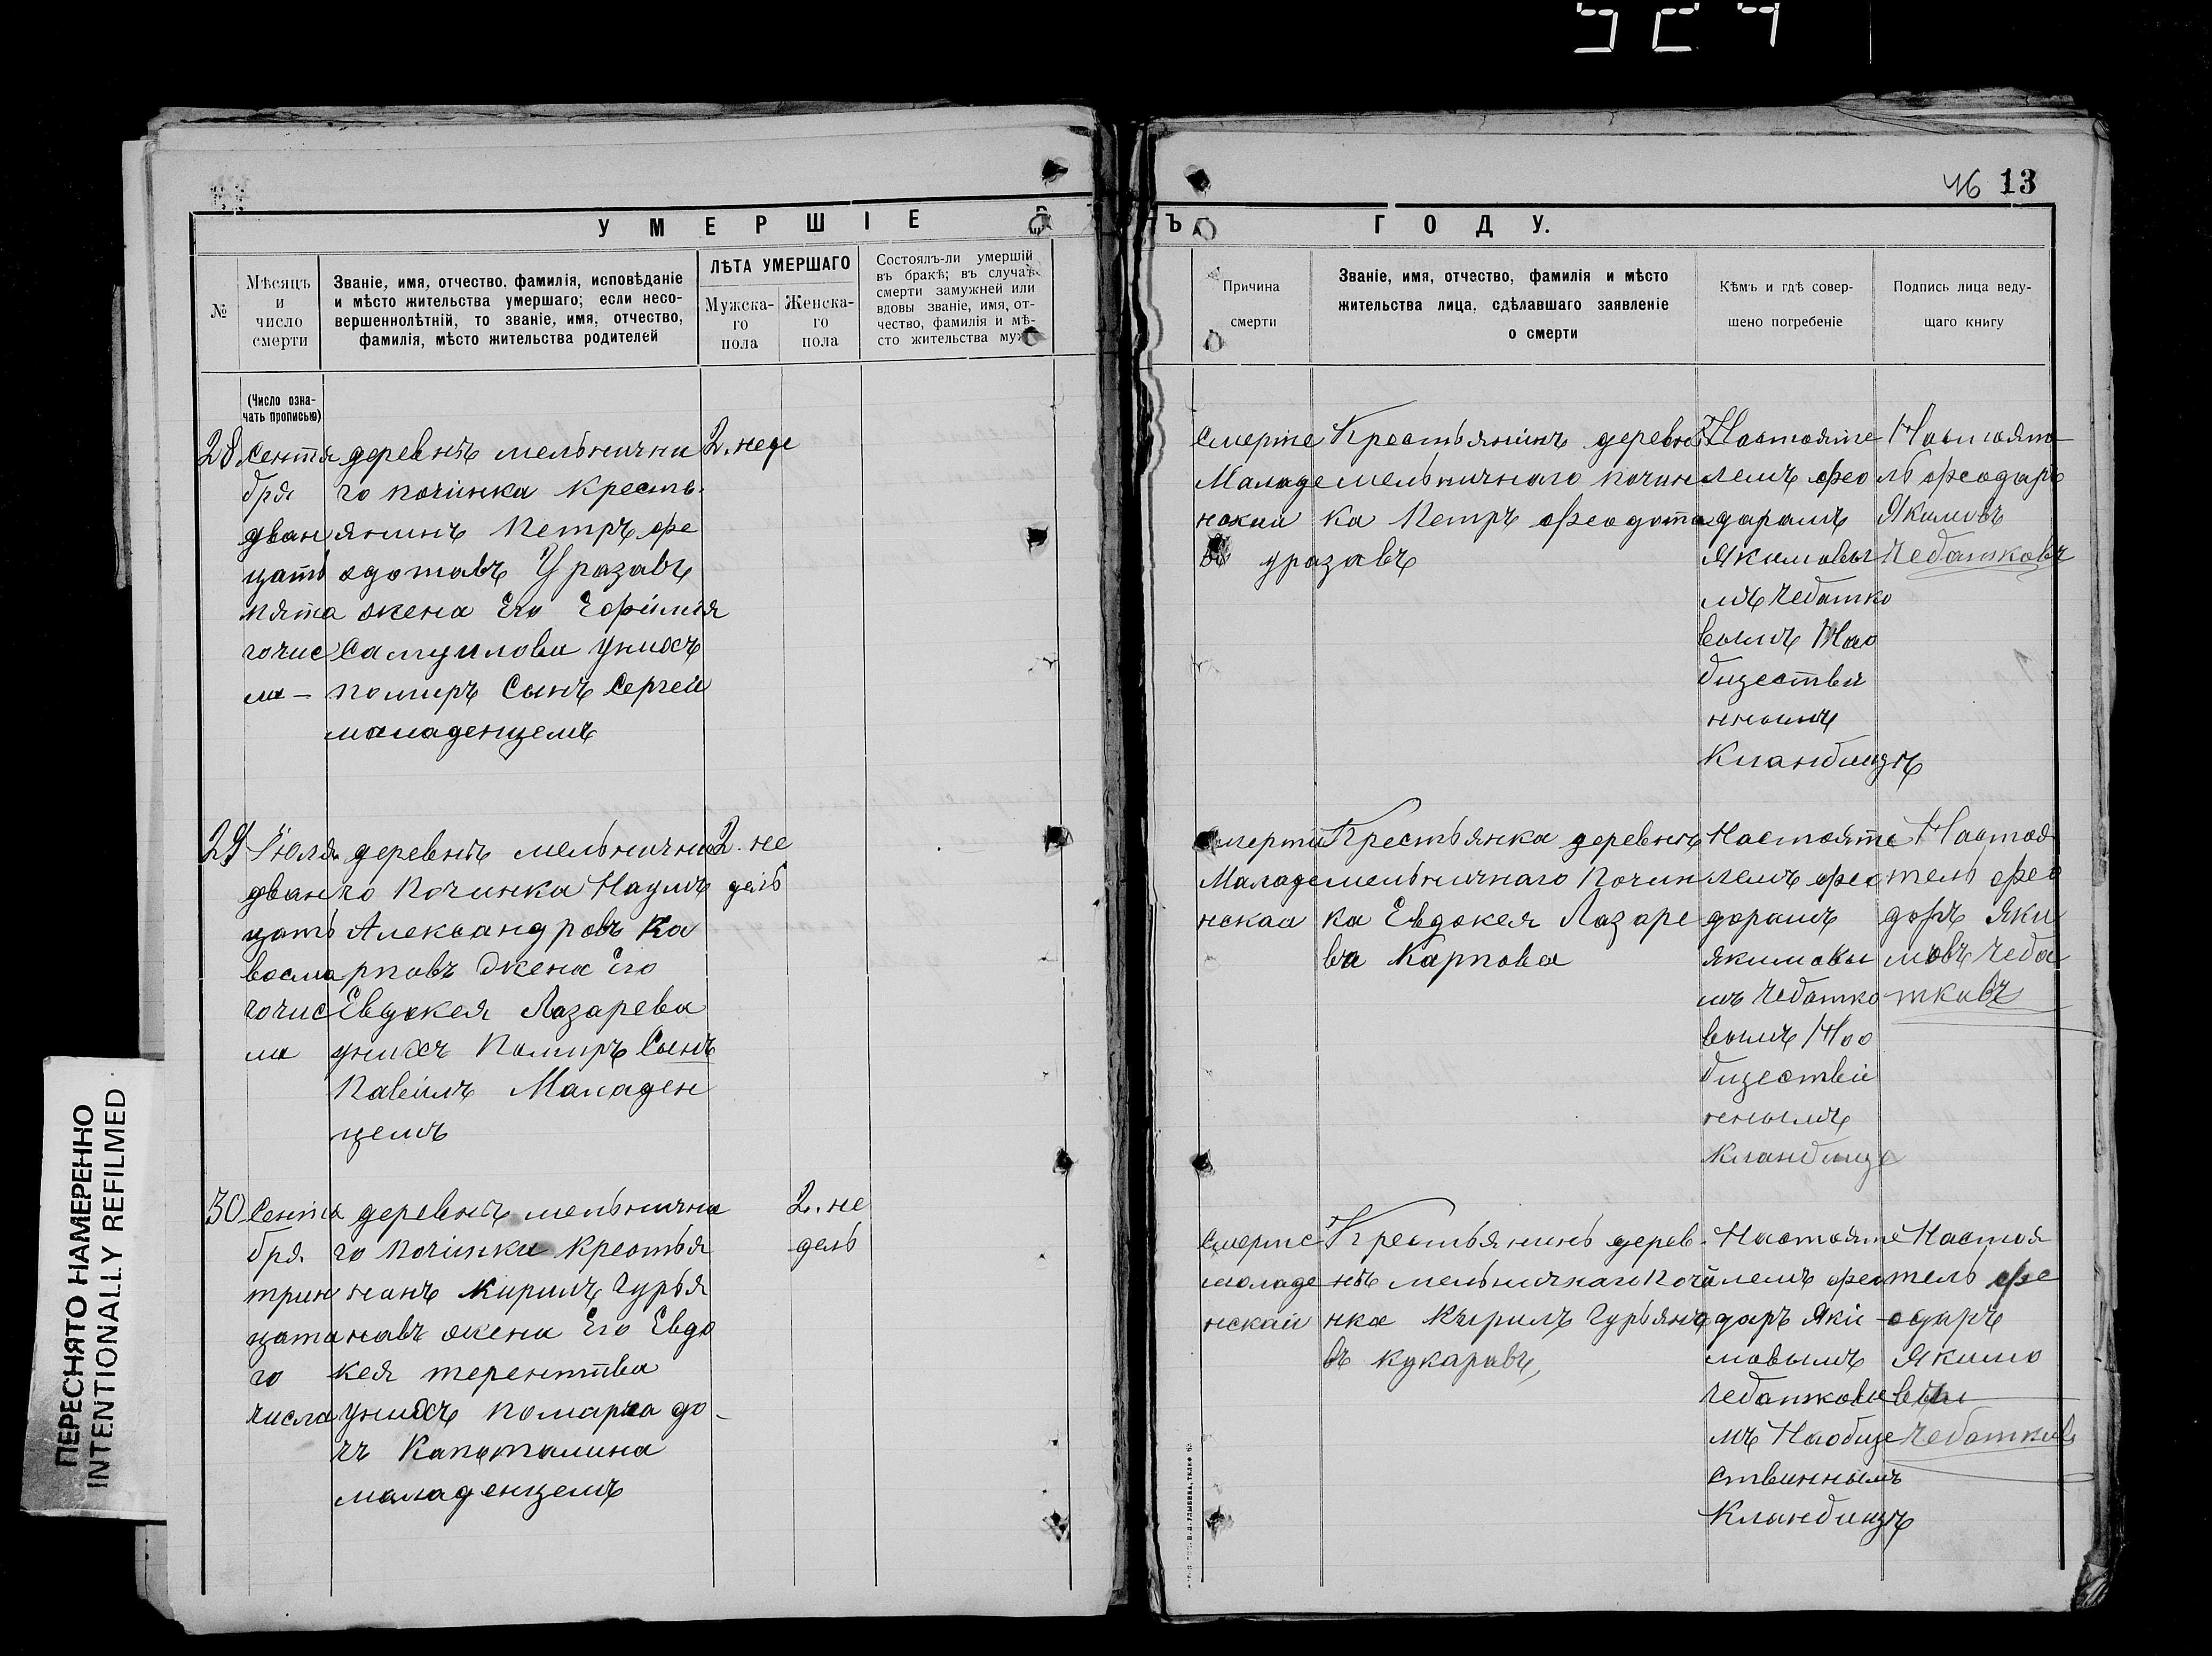 46 13
УМЕРШІЕ ВЪ ГОДУ.
№
Мѣсяцъ
и
число
смерти
Званіе, имя, отчество, фамилія, исповѣданіе
и мѣсто жительства умершаго; если несо-
вершеннолѣтній, то званіе, имя, отчество,
фамилія, мѣсто жительства родителей
ЛѢТА УМЕРШАГО
Мужска-
го
пола
Женска-
го
пола
Состоялъ-ли умершій
въ бракѣ; въ случаѣ
смерти замужней или
вдовы званіе, имя, от-
чество, фамилія и мѣ-
сто жительства мужа
Причина
смерти
Званіе, имя, отчество, фамилія и мѣсто
жительства лица, сдѣлавшаго заявленіе
о смерти
Кѣмъ и гдѣ совер-
шено погребеніе
Подпись лица веду-
щаго книгу
(Число озна-
чать прописью)
28
Сентя
бря
дван
цать
пята
гочис
ла —
деревнѣ мельнични
го починка кресть
янинъ Петръ фе
одотавъ Уразавъ
жена Его Ефимія
Самуилова унихъ
помиръ Сынъ Сергей
маладенцемъ
2. неде
Смерте
Маладе
нскаи
Крестьянинъ деревнѣ
мельничнаго почин
ка Петръ феодота
въ уразавъ
Настояте
лемъ фео
дарамъ
Якимовы
мъ Чебатко
вымъ Нао
бществи
ннымъ
Кландбищѣ
Настояте
ль феодаръ
Якимовъ
Чебатковъ
29
Июля
дван
цать
васма
гочис
ла
деревнѣ мельнични
го Починка Наумъ
Александровъ Ка
рповъ Жена Его
Евдокея Лазарева
унихъ Помиръ Сынъ
Павилъ Маладен
цемъ
2. не
дель
Смерти
Маладе
нскаи
Крестьянка деревнѣ
мельничнаго Почин
ка Евдокея Лазаре
ва Карпова
Настояте
лемъ фео
дорамъ
якимовы
мъ Чебатко
вымъ Нао
бществи
ннымъ
Кландбище
Настоя
тель фео
доръ Яки
мовъ Чеба
ткавъ
30
Сентя
бря
трин
цата
го
числа
деревнѣ мельнична
го Починка Крестья
нанъ Кирилъ Гурья
навъ жена Его Евдо
кея терентива
унихъ помарла до-
чъ Капеталина
маладенцемъ
2. не
дель
Смерте
моладе
нскаи
Крестьянинъ дерев-
нѣ мельничнаго Почи
нка Кырилъ Гурьяно
въ кукаравъ,
Настояте
лемъ фео
даръ Яки-
мовымъ
Чебаткове
мъ Наобще
ствиннымъ
Кландбищѣ
Настоя
тель фе
одаръ
Якимо
Чебатковъ
ПЕРЕСНЯТО НАМЕРЕННО
INTENTIONALLY REFILMED